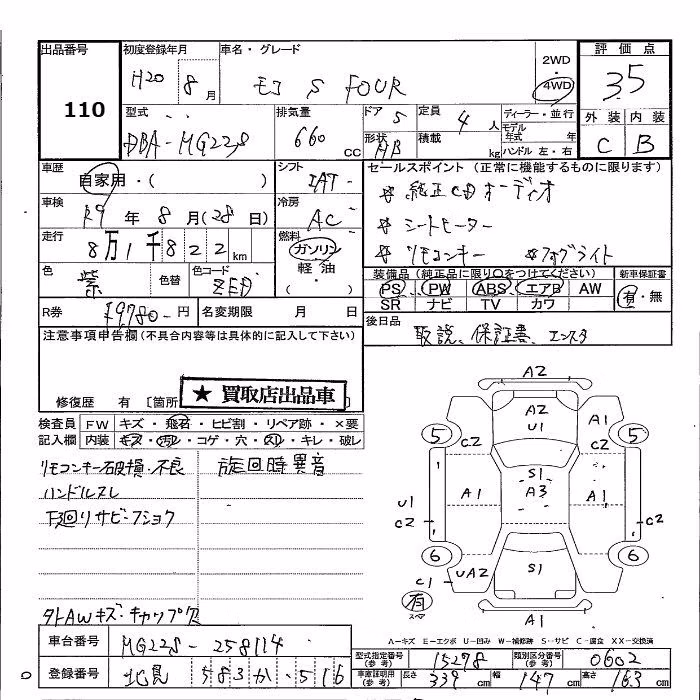 出品番号
110
初度登録年月
H20 8 月
車名・グレード
モコ S FOUR
2WD・4WD
評価点
3.5
外装 内装
C B
型式
DBA-MG22S
排気量
660 cc
ドア 5
形状 HB
定員 4 人
積載 kg
ディーラー・並行
モデル年式 年
ハンドル 左・右
車歴
自家用・( )
シフト
IAT
セールスポイント(正常に機能するものに限ります)
☆ 純正CDオーディオ
☆ シートヒーター
☆ リモコンキー ☆フォグライト
車検
R9 年 8 月(28 日)
冷房
AC
走行
8万1千822 km
燃料
ガソリン
軽油
・( )
色
紫
色替
色コード
ZED
装備品(純正品に限り〇をつけてください)
PS PW ABS エアB AW
SR ナビ TV カワ
新車保証書
有・無
R券
¥9780- 円
名変期限 月 日
後日品
取説、保証書、エンスタ
注意事項申告欄(不具合内容等は具体的に記入して下さい)
修復歴 有 [箇所
★ 買取店出品車
検査員記入欄
FW キズ・飛石・ヒビ割・リペア跡・×要
内装 キズ・汚レ・コゲ・穴・スレ・キレ・破レ
リモコンキー破損・不良
旋回時異音
ハンドルスレ
下廻りサビ・フショク
外AWキズ・キャップ欠
A2
A2
U1
A1
5
5
C2
C2
S1
A3
A1
A1
U1
C2
C2
6
6
C1
UA2
S1
有
スペア
A1
A-キズ E-エクボ U-凹み W-補修跡 S-サビ C-腐食 XX-交換済
車台番号
MG22S-258114
登録番号
北見 583 か・516
型式指定番号(参考)
15278
類別区分番号(参考)
0602
車庫証明用(参考)
長さ 339 cm
幅 147 cm
高さ 163 cm